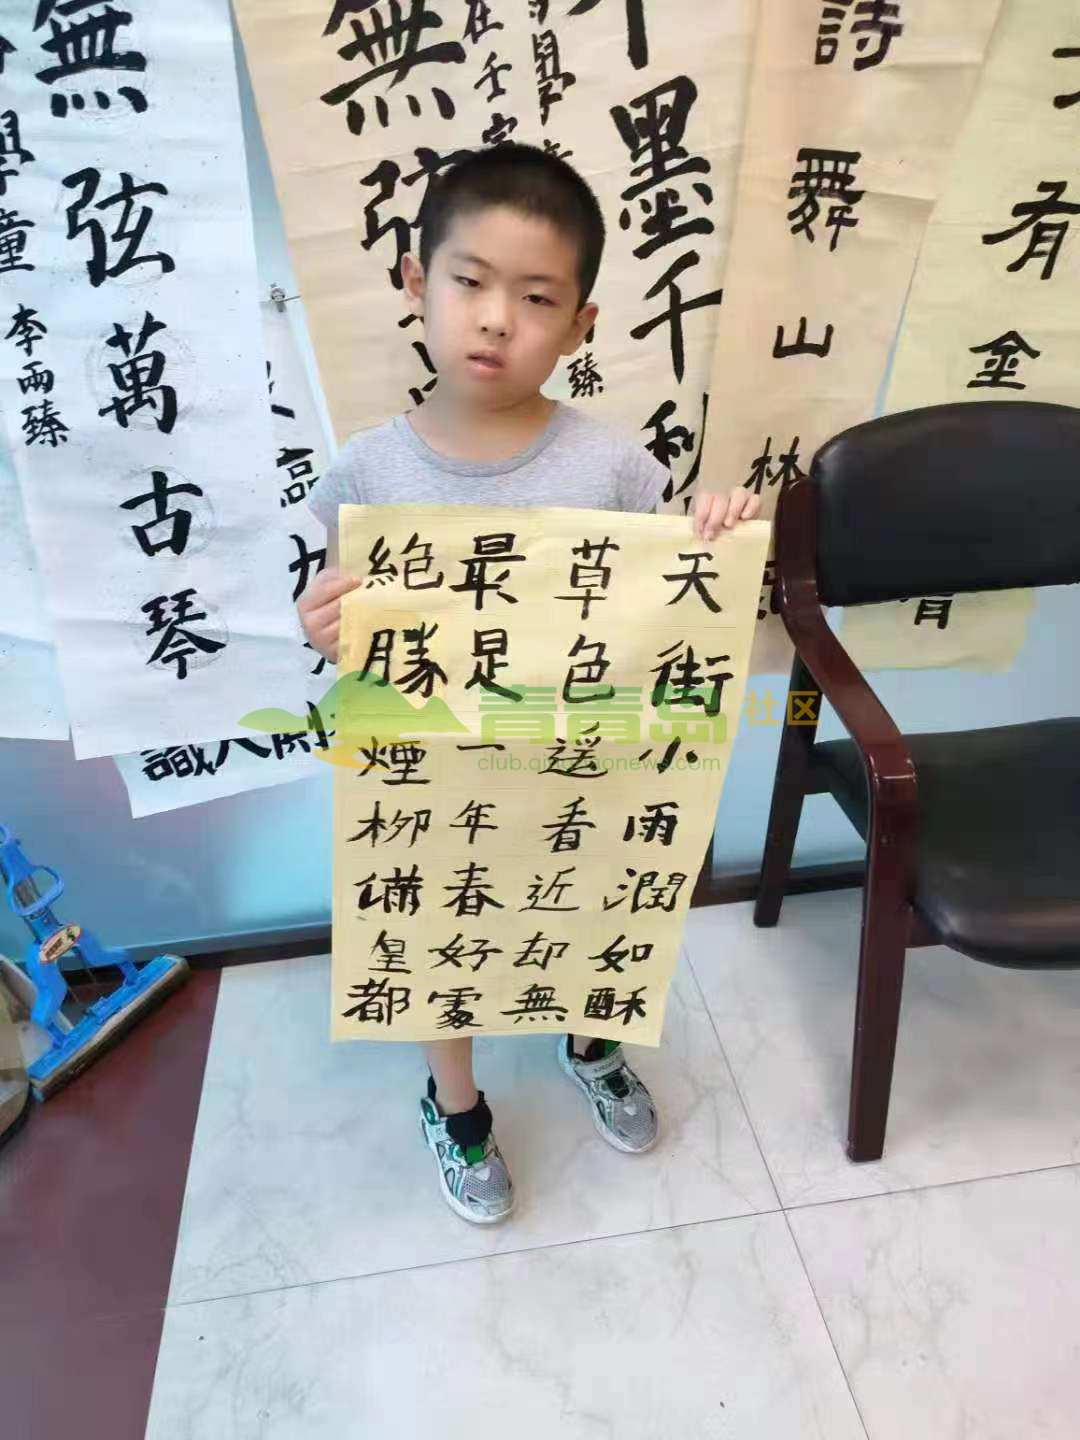 天街小雨潤如酥
草色遥看近却無
最是一年春好處
絶勝煙柳滿皇都
詩舞山林
有金
墨千秋
學
在壬寅
無弦
臻
無弦萬古琴
學童李雨臻
高
識人
青青岛社区
club.qingdaonews.com